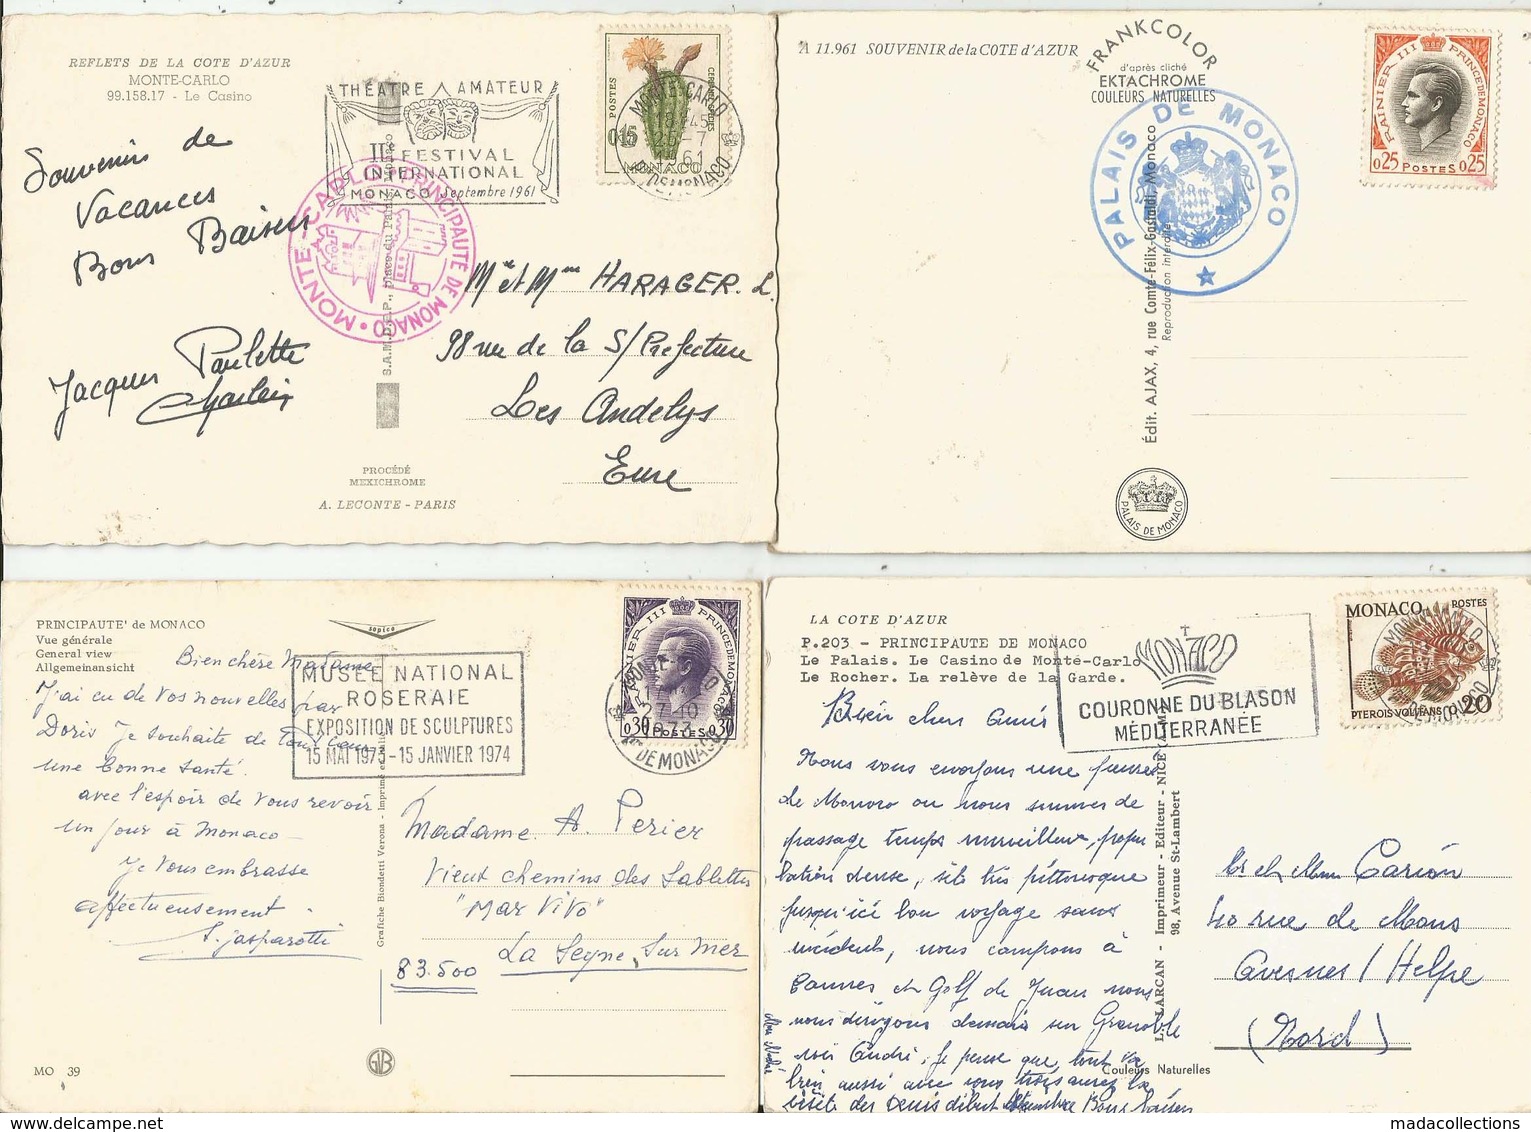 REFLETS DE LA COTE D'AZUR
MONTE-CARLO
99.158.17 - Le Casino
THÉATRE AMATEUR
IIe FESTIVAL
INTERNATIONAL
MONACO Septembre 1961
POSTES
0,15
MONACO
MONTE-CARLO
MONTE-CARLO PRINCIPAUTÉ DE MONACO
Souvenirs de
Vacances
Bons Baisers
Jacques Paulette
Mr et Mme HARAGER. L.
98 rue de la S/Prefecture
Les Andelys
Eure
PROCÉDÉ
MEXICHROME
A. LECONTE - PARIS
A 11.961 SOUVENIR de la COTE d'AZUR
FRANKCOLOR
d'après cliché
EKTACHROME
COULEURS NATURELLES
PALAIS DE MONACO
Édit. AJAX, 4, rue Comte-Félix-Gastaldi, Monaco
Reproduction interdite
PALAIS DE MONACO
RAINIER III PRINCE DE MONACO
0,25 POSTES 0,25
PRINCIPAUTE' de MONACO
Vue générale
General view
Allgemeinansicht
sapico
MUSÉE NATIONAL
ROSERAIE
EXPOSITION DE SCULPTURES
15 MAI 1973-15 JANVIER 1974
RAINIER III PRINCE DE MONACO
0,30 POSTES 0,30
27-10
1973
Pte DE MONACO
Bien chère Madame
J'ai eu de vos nouvelles par
Doris je souhaite de tout cœur
une bonne santé.
avec l'espoir de vous revoir
un jour à Monaco
Je vous embrasse
affectueusement.
S. Gasparotti
Grafiche Biondetti Verona - Imprimé en Italie
Madame A. Perier
Vieux chemins des Sablettes
"Mar Vivo"
La Seyne sur Mer
83.500
MO 39
LA COTE D'AZUR
P.203 - PRINCIPAUTE DE MONACO
Le Palais. Le Casino de Monte-Carlo
Le Rocher. La relève de la Garde.
MONACO
COURONNE DU BLASON
MÉDITERRANÉE
MONACO POSTES
PTEROIS VOLITANS 0,20
Bien chers amis
Nous vous envoyons une pensée
de Monaco ou nous sommes de
passage temps merveilleux, popu
lation dense, site très pittoresque
jusqu'ici bon voyage sans
incidents, nous campons à
Cannes et Golf de Juan nous
nous dirigeons demain sur Grenoble
voir André. Je pense que tout va
bien aussi avec vous
visite de Denis début Bons baisers
L. LARCAN - Imprimeur - Editeur - NICE
98, Avenue St-Lambert
Mr et Mme Carion
40 rue de Mons
Avesnes / Helpe
(Nord)
Couleurs Naturelles
www.delcampe.net
madacollections